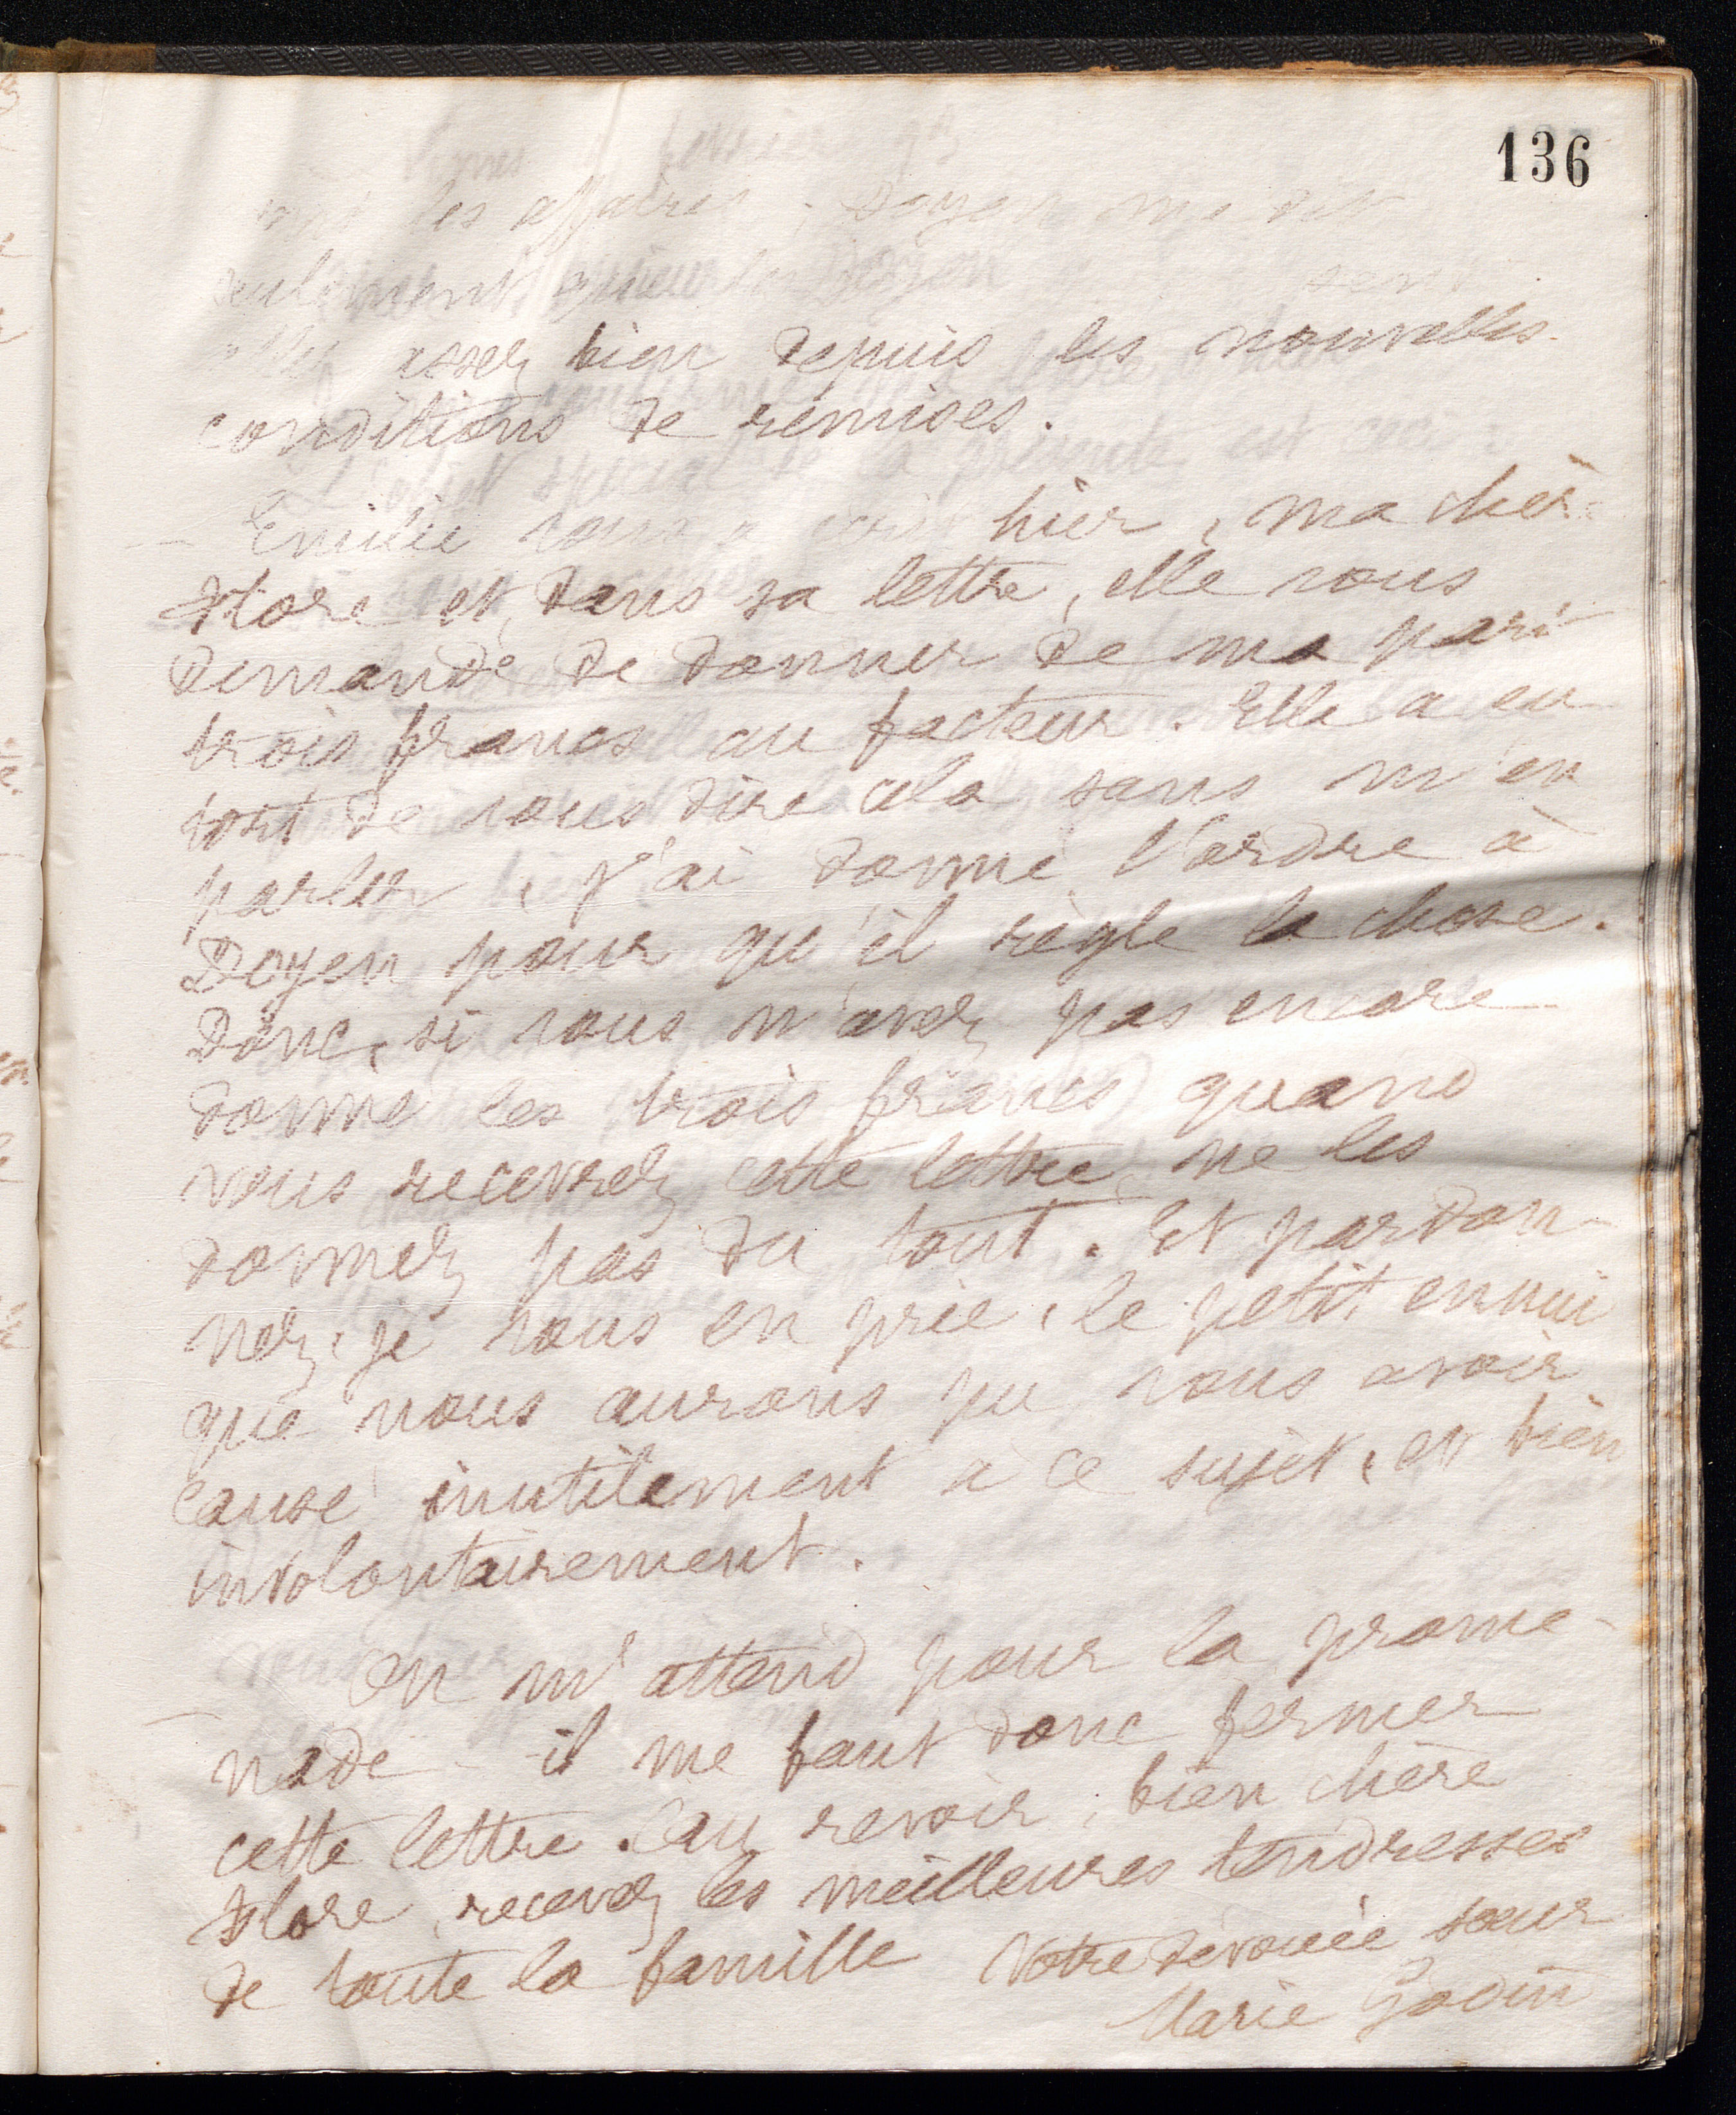 136
les affaires. Doyen me dit
seulement que
assez bien depuis les nouvelles
conditions de remises.
Emilie vous a hier, ma chère
Flore et, dans sa lettre, elle vous
demande de donner de ma part
trois francs au facteur. Elle a eu
tort de vous dire cela sans m'en
parler. J'ai donné l'ordre à
Doyen pour qu'il règle la chose.
Donc, si vous n'avez pas encore
donné les trois francs quand
vous recevrez cette lettre, ne les
donnez pas du tout. Et pardon-
nez, je vous en prie, le petit ennui
que nous aurons pu vous avoir
causé inutilement à ce sujet, et bien
involontairement.
On m'attend pour la prome-
nade - il me faut donc fermer
cette lettre. Au revoir, bien chère
Flore, recevez les meilleures tendresses
de toute la famille Votre dévouée sœur
Marie Godin